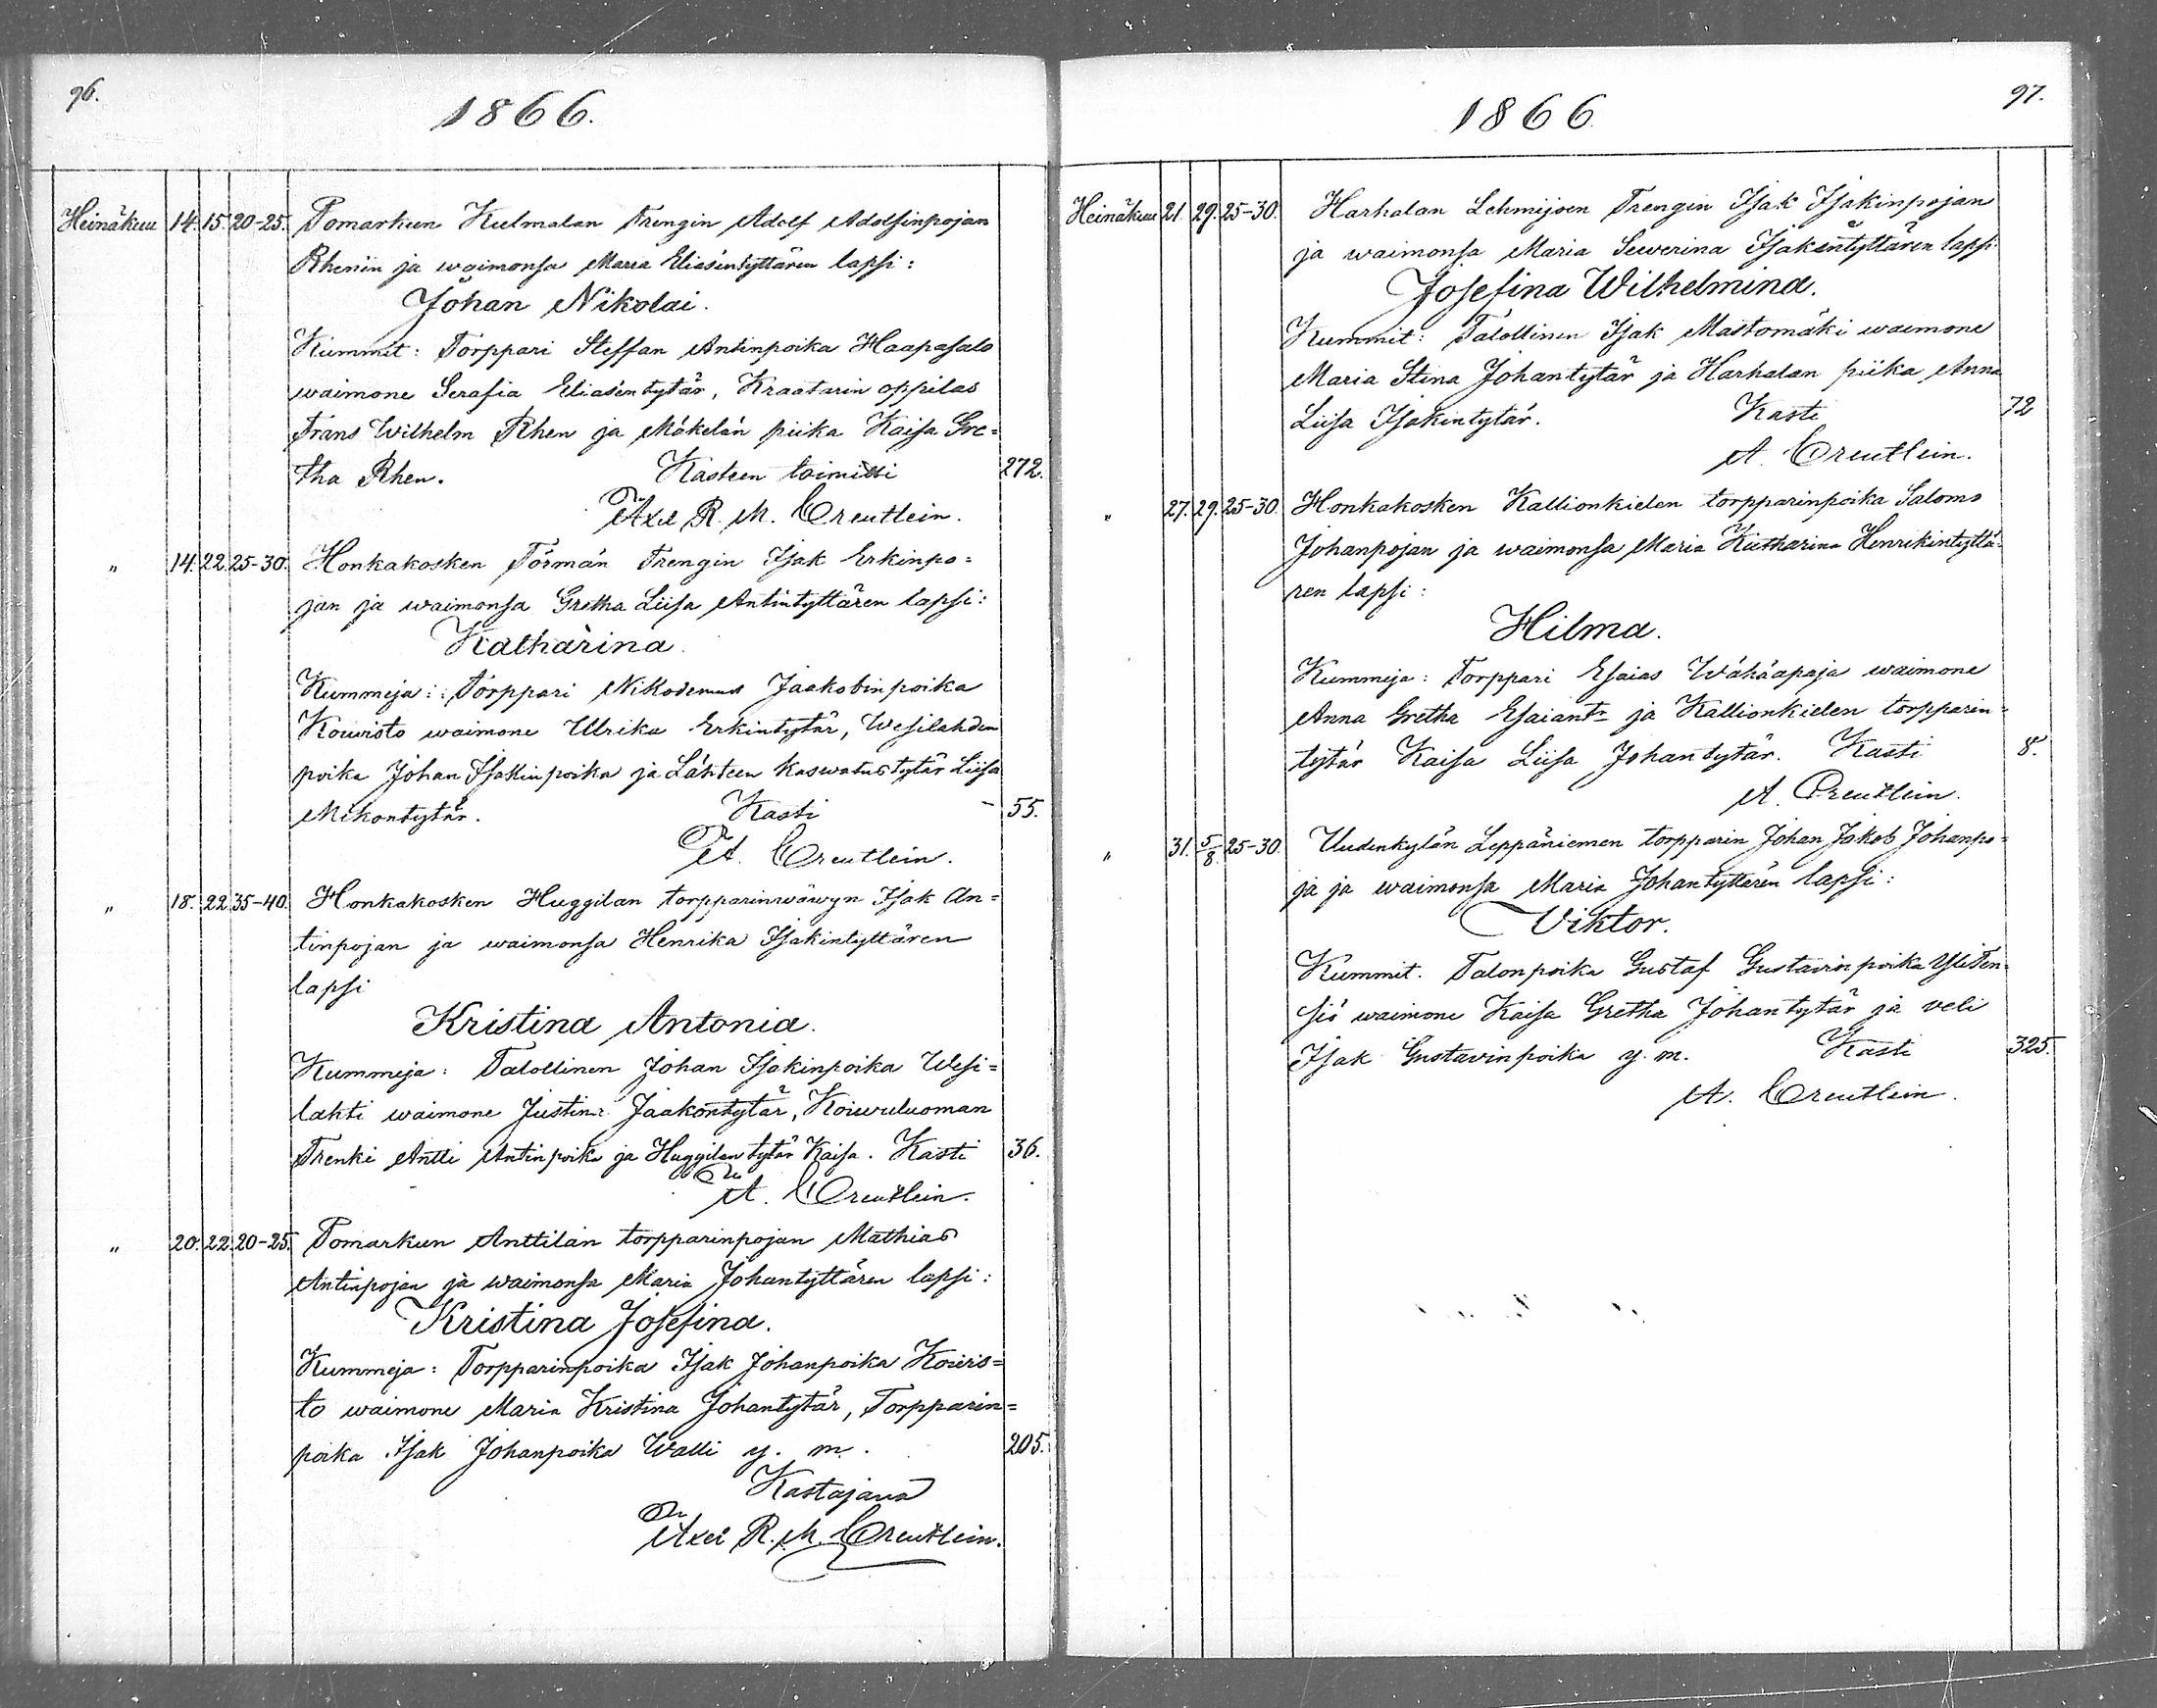 96.
1866.
Heinäkuu 14. 15. 20-25. Pomarkun Kulmalan Trengin Adolf Adolfinpojan
Rhenin ja waimonsa Maria Eliasentyttären lapsi:
Johan Nikolai.
Kummit: Torppari Steffan Antinpoika Haapasalo
waimone Serafia Eliasentytär, Kraatarin oppilas
Frans Wilhelm Rhen ja Mäkelän piika Kaisa Gre=
tha Rhen. Kasteen toimitti 272.
Axel R. M. Creutlein.
" 14. 22. 25-30. Honkakosken Törmän Trengin Isak Erkinpo=
jan ja waimonsa Gretha Liisa Antintyttären lapsi:
Katharina.
Kummeja: Torppari Nikodemus Jaakobinpoika
Kouristo waimone Ulrika Erkintytär, Wesilahden
poika Johan Isakinpoika ja Lähteen kaswatustytär Liisa
Mikontytär. Kasti - 55.
A. Creutlein.
" 18. 22. 35-40. Honkakosken Huggilan torpparinwäwyn Isak An=
tinpojan ja waimonsa Henrika Isakintyttären
lapsi
Kristina Antonia.
Kummeja: Talollinen Johan Isakinpoika Wesi=
lahti waimone Justina Jaakontytär, Koiwuluoman
Trenki Antti Antinpoika ja Huggilan tytär Kaisa. Kasti 36.
A. Creutlein.
" 20. 22. 20-25. Pomarkun Anttilan torpparinpojan Mathias
Antinpojan ja waimonsa Maria Johantyttären lapsi:
Kristina Josefina.
Kummeja: Torpparinpoika Isak Johanpoika Kouris=
to waimone Maria Kristina Johantytär, Torpparin=
poika Isak Johanpoika Walli y. m. 205.
Kastajana
Axel R. M. Creutlein.
97.
1866.
Heinäkuu 21. 29. 25-30. Harhalan Lehmijoen Trengin Isak Isakinpojan
ja waimonsa Maria Sewerina Isakintyttären lapsi
Josefina Wilhelmina.
Kummit: Talollinen Isak Mastomäki waimone
Maria Stina Johantytär ja Harhalan piika Anna
Liisa Isakintytär. Kasti 72
A. Creutlein.
" 27. 29. 25-30. Honkakosken Kallionkielen torpparinpoika Salomo
Johanpojan ja waimonsa Maria Katharina Henrikintyttä=
ren lapsi:
Hilma.
Kummeja: Torppari Esaias Wähäapaja waimone
Anna Gretha Esaiantr ja Kallionkielen torpparin=
tytär Kaisa Liisa Johantytär. Kasti 8.
A. Creutlein.
" 31. 5/8. 25-30. Uudenkylän Leppäniemen torpparin Johan Jakob Johanpo=
ja ja waimonsa Maria Johantyttären lapsi:
Viktor.
Kummit. Talonpoika Gustaf Gustavinpoika YliTen=
siö waimone Kaisa Gretha Johantytär ja veli
Isak Gustavinpoika y. m. Kasti 325.
A. Creutlein.